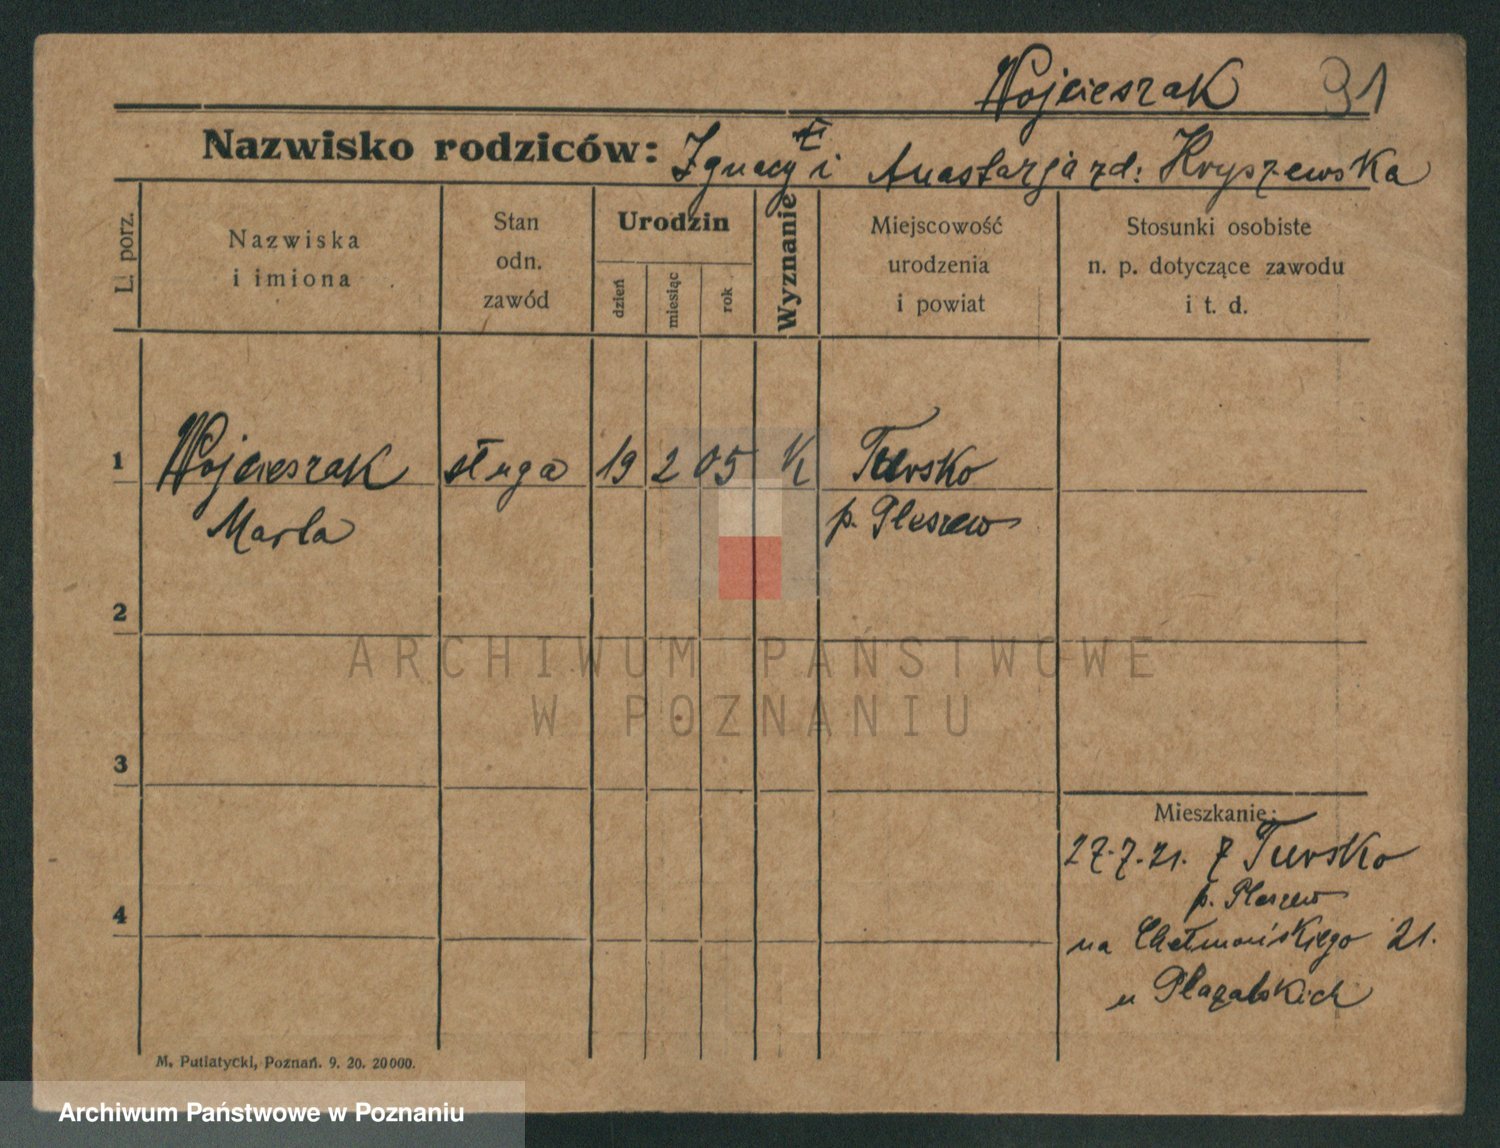 Wojcieszak 91
Nazwisko rodziców: Ignacy i Anastazja zd: Kryszewska
L. porz.
Nazwiska
i imiona
Stan
odn.
zawód
Urodzin
dzień
miesiąc
rok
Wyznanie
Miejscowość
urodzenia
i powiat
Stosunki osobiste
n. p. dotyczące zawodu
i t. d.
1 Wojcieszak sługa 19 2 05 K Tursko
Marla p. Pleszew
2
ARCHIWUM PAŃSTWOWE
W POZNANIU
3
Mieszkanie:
27.7.21. z Tursko
p. Pleszew
4
na Chełmońskiego 21.
u
M. Putiatycki, Poznań. 9. 20. 20000.
Archiwum Państwowe w Poznaniu